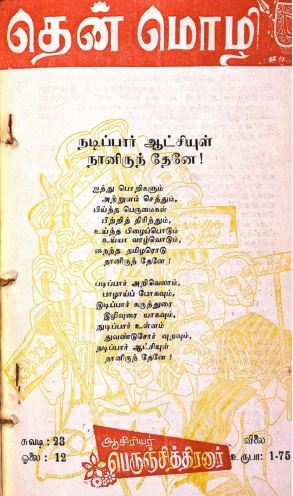 தென் மொழி
நடிப்பார் ஆட்சியுள்
நானிருந் தேனே !
ஐந்து பொறிகளும்
அற்றுளம் செத்தும்,
பிய்த்த பெருமைகள்
பீற்றித் திரிந்தும்,
உய்த்த பிழைப்பொடும்
உய்யா வாழ்வொடும்,
நைந்த தமிழரொடு
நானிருந் தேனே !
படிப்பார் அறிவெலாம்
பாழாய்ப் போகவும்,
இடிப்பார் கருத்துரை
இழிவுரை யாகவும்,
துடிப்பார் உள்ளம்
துவண்டுசோர் வுறவும்,
நடிப்பார் ஆட்சியுள்
நானிருந் தேனே !
சுவடி : 23
ஓலை : 12
ஆசிரியர்
பெருஞ்சித்திரனார்
விலை
உருபா: 1-75